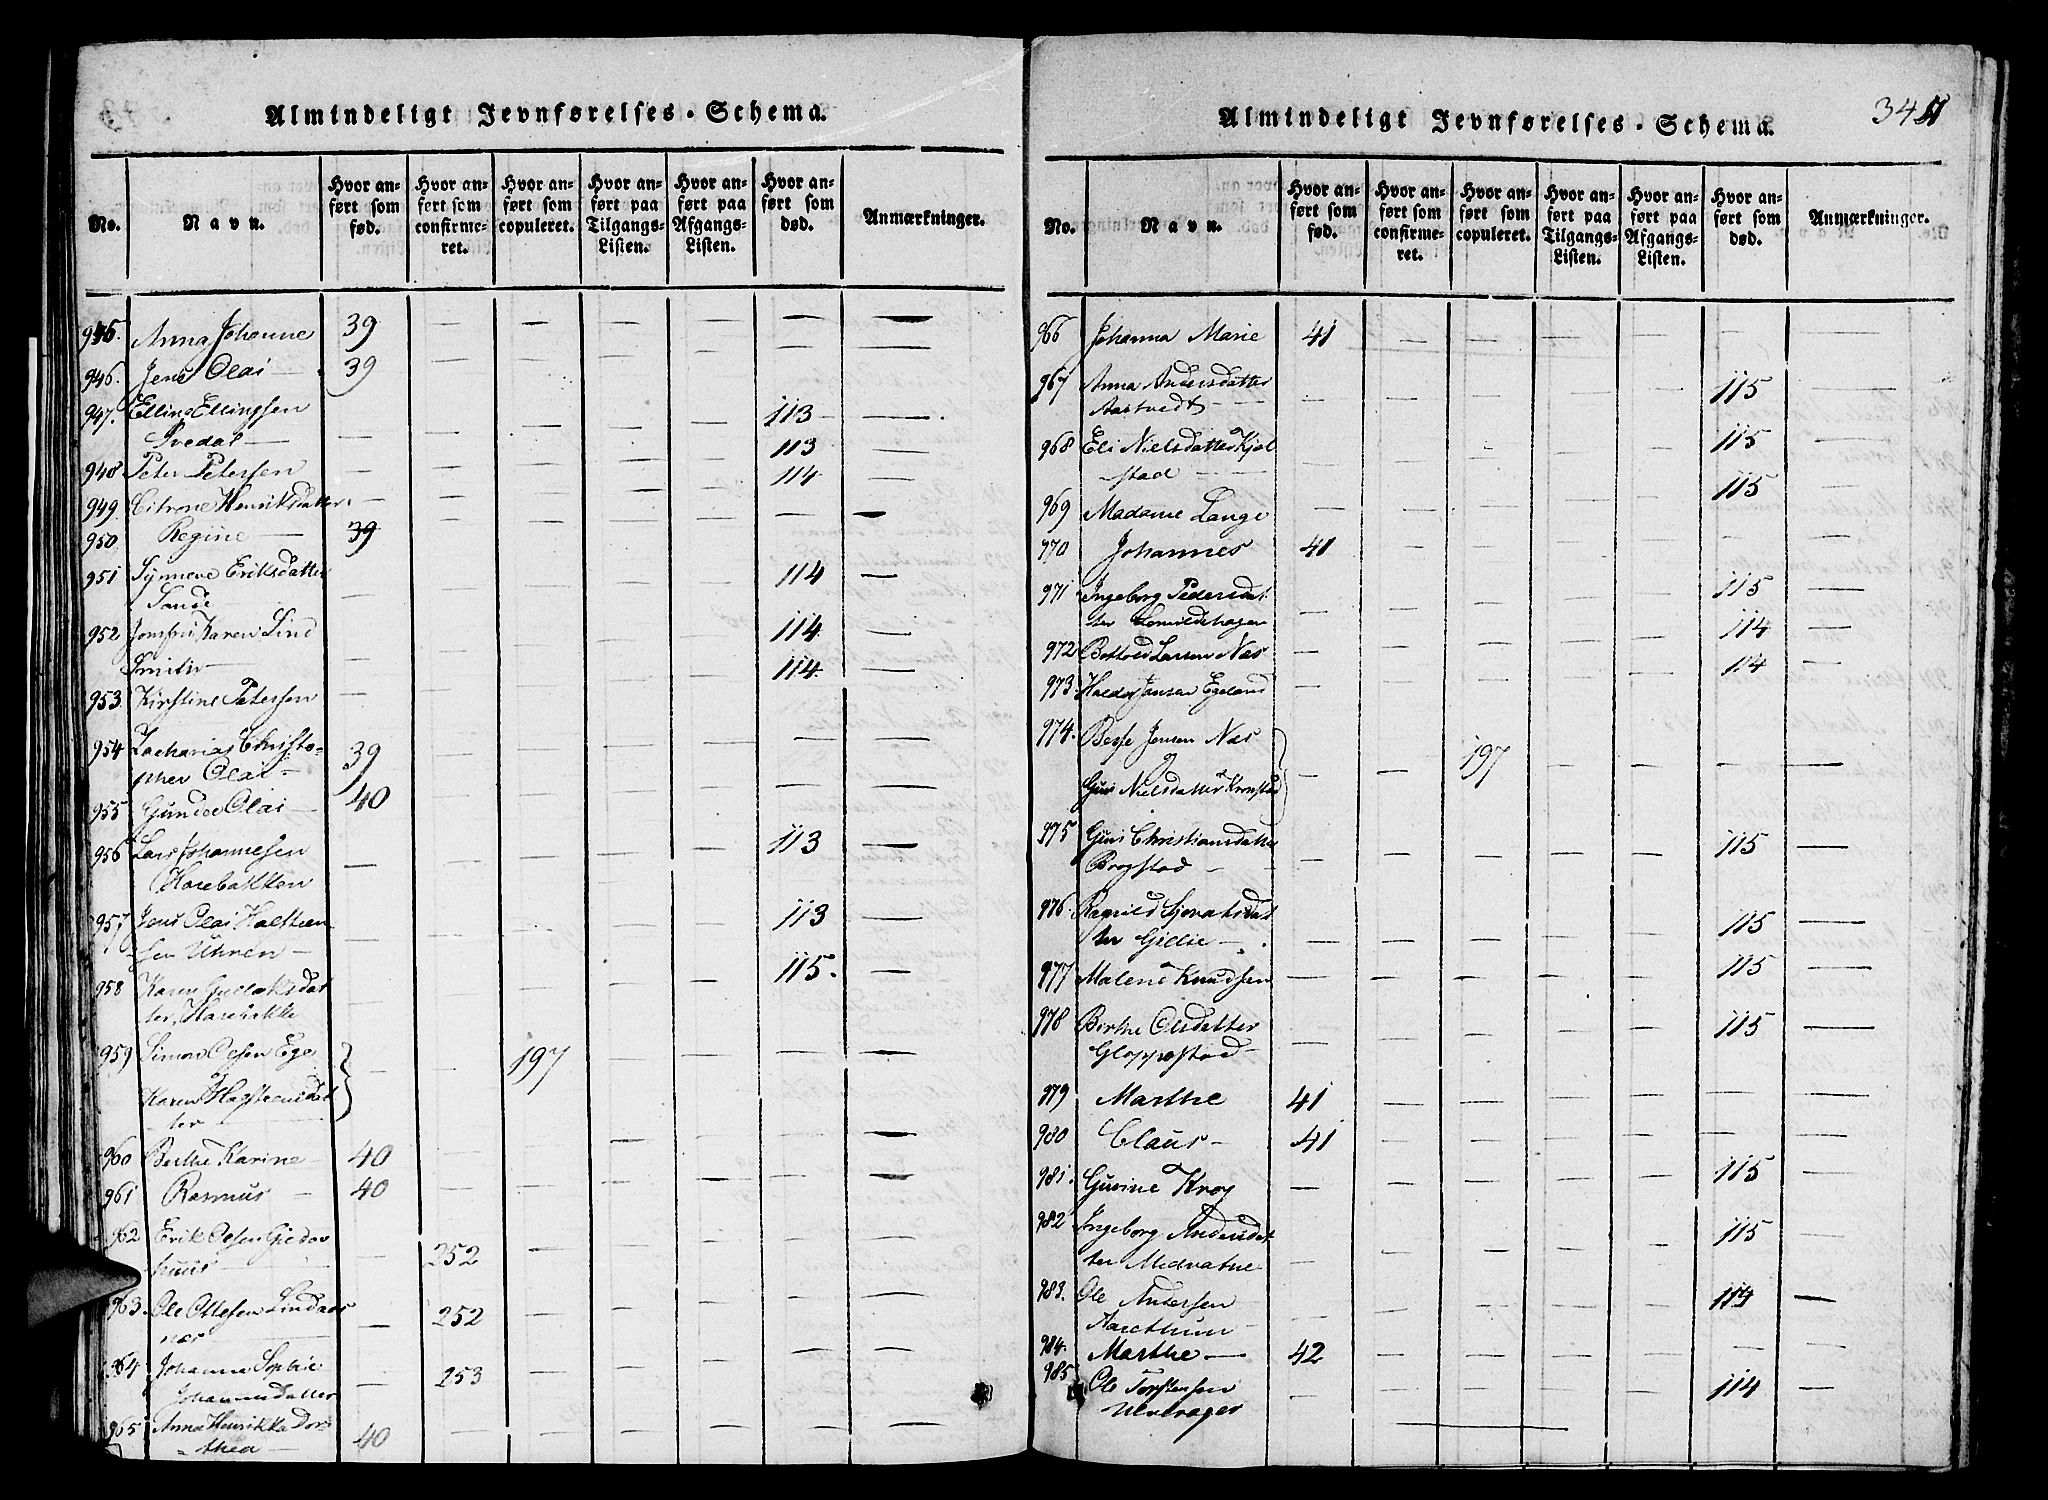 Almindeligt Jevnførelses-Schema.
No.
Navn.
Hvor an-
ført som
fød.
Hvor an-
ført som
confirme-
ret.
Hvor an-
ført som
copuleret.
Hvor an-
ført paa
Tilgangs-
Listen.
Hvor an-
ført paa
Afgangs-
Listen.
Hvor an-
ført som
død.
Anmærkninger.
945. Anna Johanne 39 — — — — — —
946. Jens Olai — 39 — — — — — —
947. Elling Ellingsen
Svedal — — — — — — 113 —
948 Peter Petersen — — — — — 113 —
949. Citrone Henriksdatter — — — — — 114 —
950. Regine — 39 — — — — — —
951 Synneve Eriksdatter
Sande — — — — — 114 —
952 Jomfru Karen Lind
Smith — — — — — — 114 —
953. Kirstine Petersen — — — — — 114. —
954 Zacharias Christo-
pher Olai — 39 — — — — — —
955 Gunder Olai — 40 — — — — — —
956 Lars Johannesen
— — — — — 113 —
957 Jens Olai
sen Uhren — — — — — — 113 —
958 Karen
ter, — — — — — 115. —
959 Simon Olsen Ege
Karen
ter — — 197 — — — —
960 Berthe Karine — 40 — — — — — —
961 Rasmus — 40 — — — — — —
962 Erik Olsen
huus — — 252 — — — — —
963. Ole Ottesen
nær — 252 — — — — —
964 Johanne Sophie
Johannesdatter — 253 — — — — —
965 Anna Henrikka Dor-
thea — 40 — — — — — —
Almindeligt Jevnførelses-Schema.
34
No.
Navn.
Hvor an-
ført som
fød.
Hvor an-
ført som
confirme-
ret.
Hvor an-
ført som
copuleret.
Hvor an-
ført paa
Tilgangs-
Listen.
Hvor an-
ført paa
Afgangs-
Listen.
Hvor an-
ført som
død.
Anmærkninger.
966 Johanna Marie 41 — — — — — —
967 Anna Andersdatter
Aastvedt — — — — — 115 —
968 Eli Nielsdatter Kjøl
stad — — — — — — 115 —
969 Madame Lange — — — — — 115 —
970 Johannes 41 — — — — — —
971 Ingeborg Pedersdat
ter — — — — — 115 —
972 Larsen Næs — — — — — 114 —
973. Jansen Egeland — — — — — 114 —
974. Jensen Næs
Guri Nielsdatter — — 197 — — — —
975 Guri Christiansdatter
Brogstad — — — — — — 115 —
976. Ragnild
ter — — — — — — 115 —
977 Malene Knudsen — — — — — 115 —
978 Berthe Olsdatter
Gloppestad — — — — — 115 —
979 Marthe 41 — — — — — —
980 Claus — 41 — — — — — —
981. Gurine Krog — — — — — 115 —
982 Ingeborg Andersdat
ter Midvatne — — — — — 115 —
983. Ole Andersen
— — — — — 114 —
984. Marthe — 42 — — — — — —
985 Ole Torstensen
— — — — — 114 —